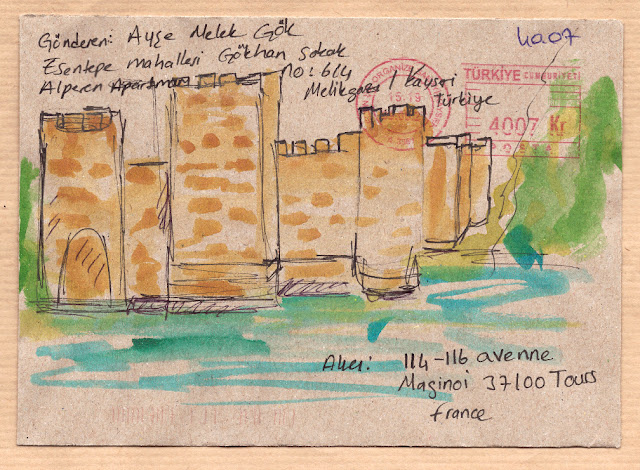 Gönderen: Ayşe Melek Gök
Esentepe mahallesi Gökhan Sokak
Alperen Apartmanı no: 6/4
Melikgazi / Kayseri
Türkiye
4007
ORGANİZE SAN
15.19
TÜRKİYE CUMHURİYETİ
4007 Kr
POSTA
Alıcı: 114-116 avenne
Maginoi 37100 Tours
france